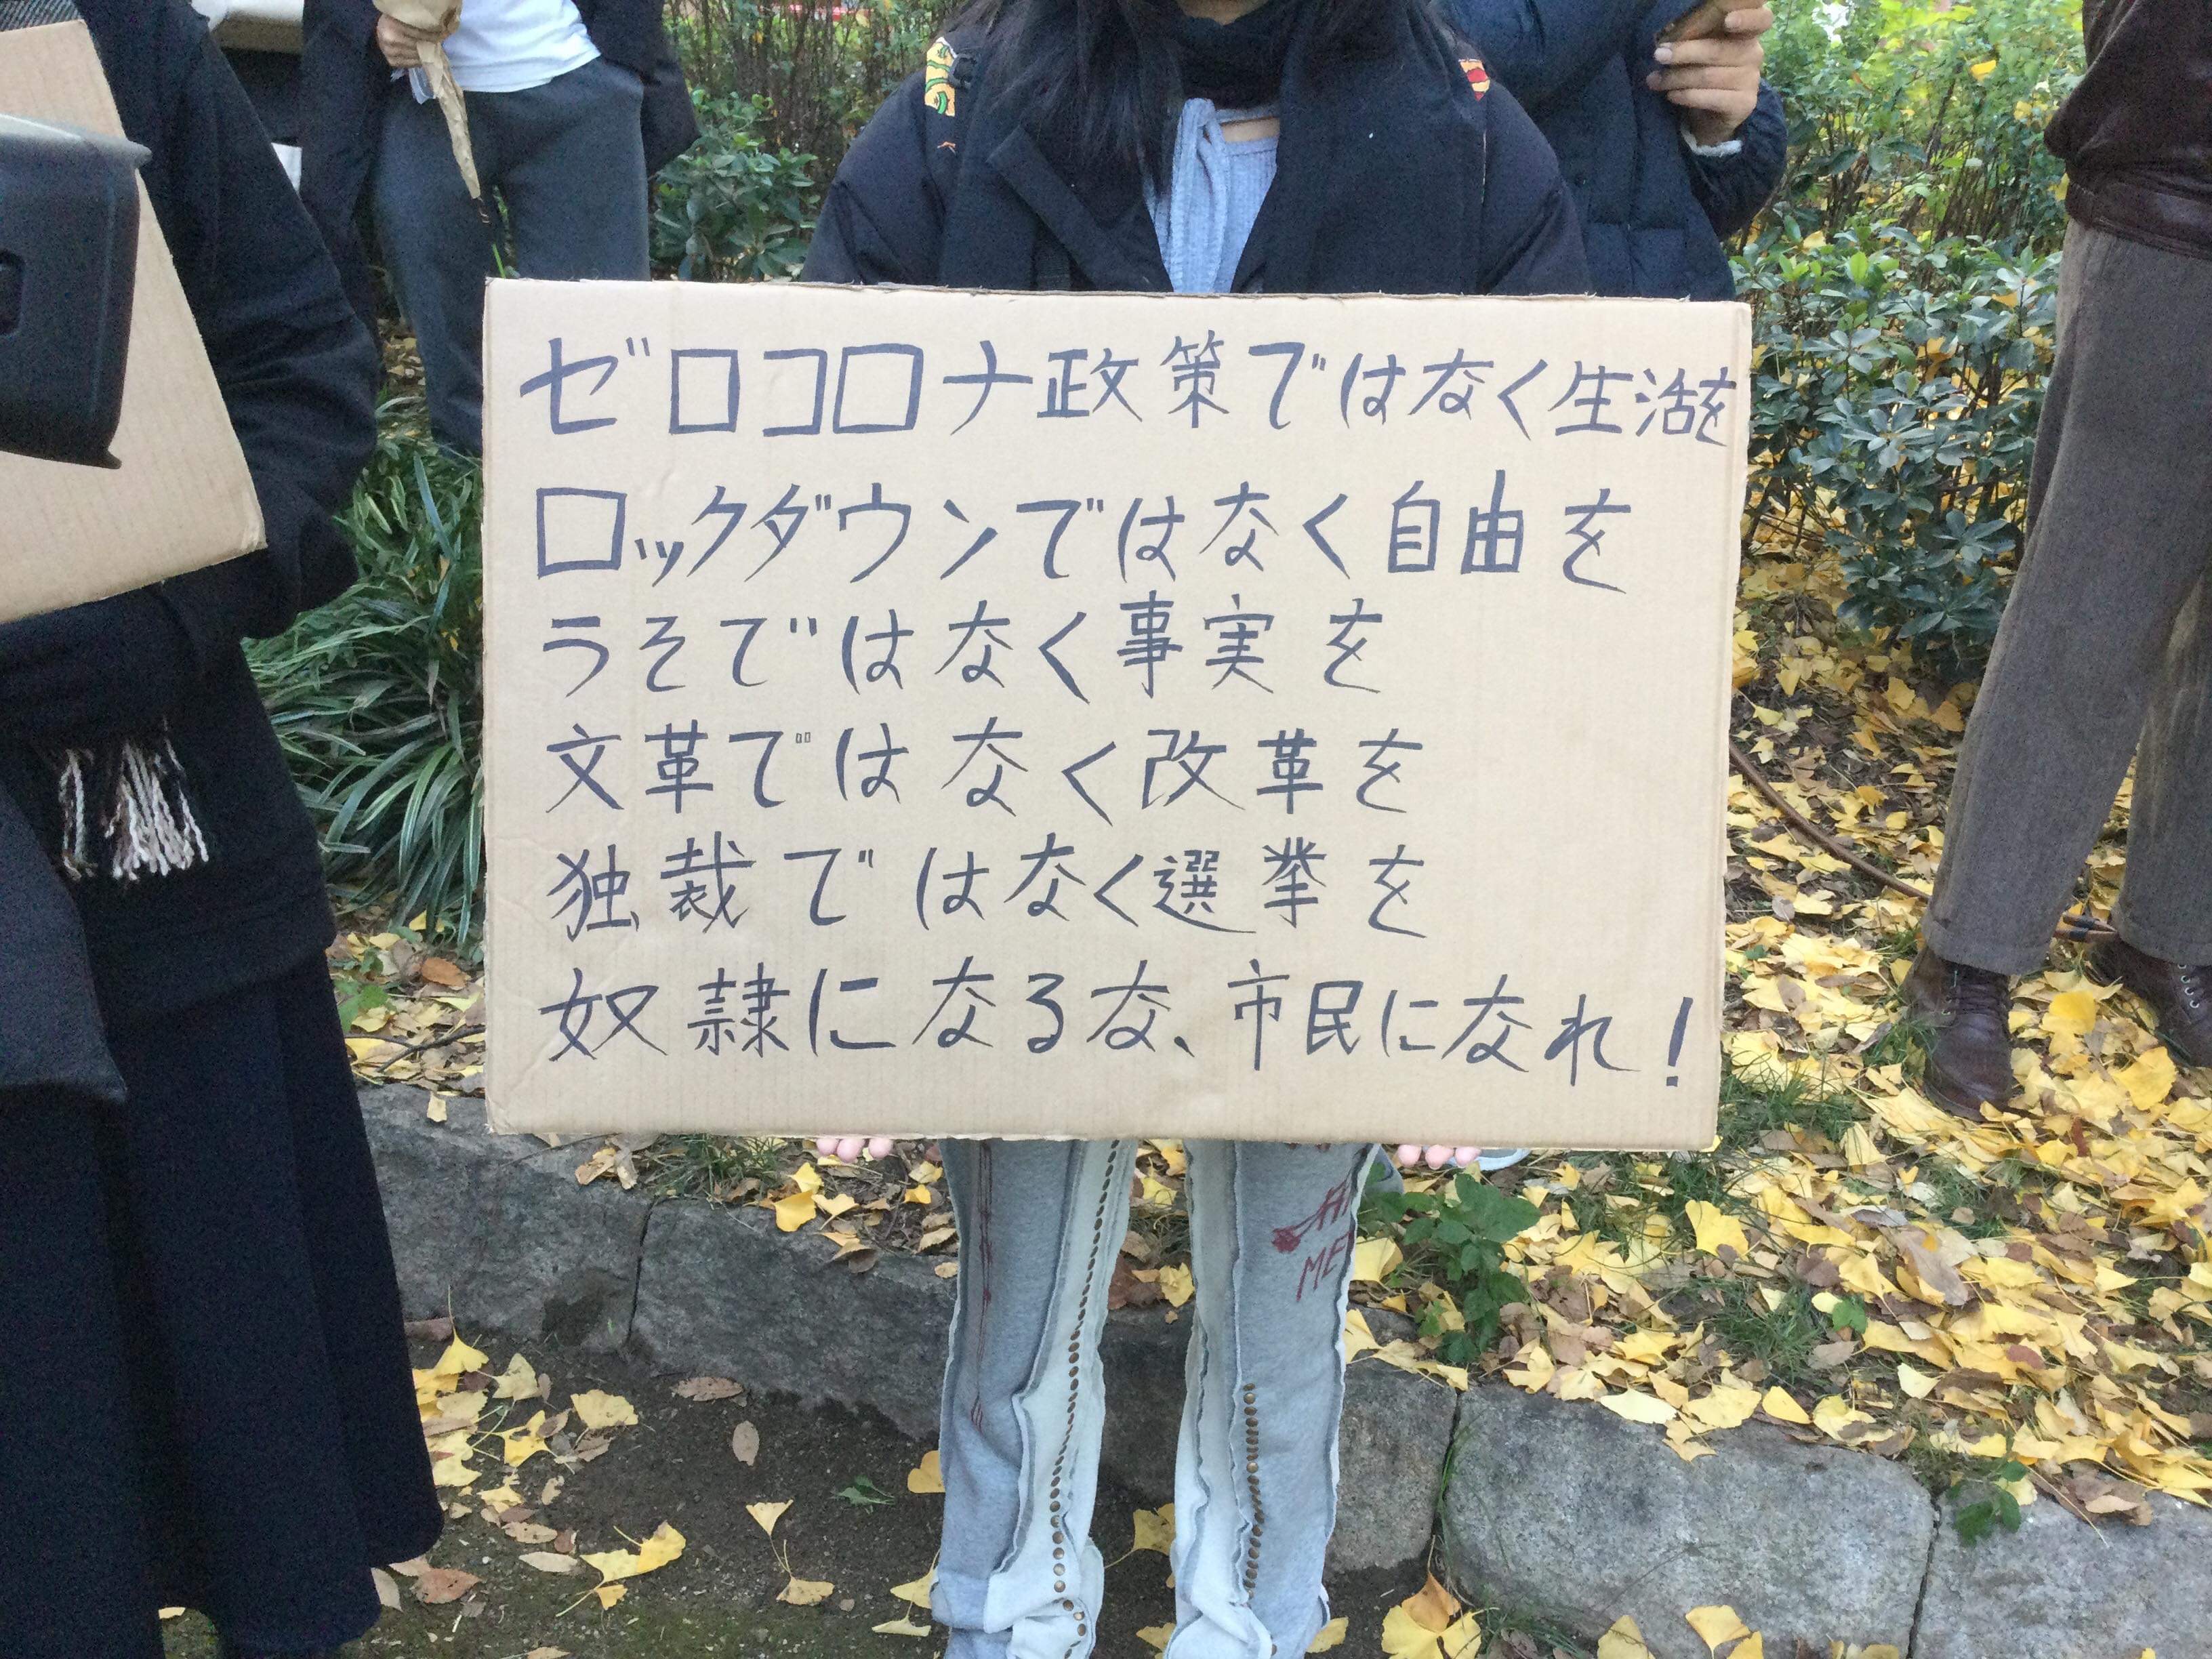 ゼロコロナ政策ではなく生活を
ロックダウンではなく自由を
うそではなく事実を
文革ではなく改革を
独裁ではなく選挙を
奴隷になるな、市民になれ!